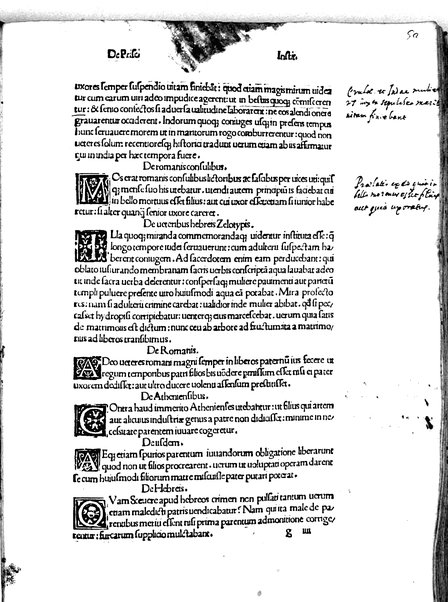 50
De Prisci Instit.
uxores semper suspendio uitam finiebāt: quod etiam magis mirum uidea
tur cum earum uiri adeo impudice agerent: ut in bestiis quoq; cōmisceren
tur: & senio confectos si aduersa ualitudine laborarent: ne eos alendi onere
grauarentur occiderent. Indorum quoq; coniuges usq; in presens tempus
hunc seruauere morem ut in maritorum rogo comburerentur: quod non
ueteres solum: recentioresq; historia tradunt uerum etiam ab iis affirmatur
qui in india per hæc tempora fuere.
De romanis consulibus.
MOs erat romanis consulibus lictoribus ac fascibus per uices uti: qui
q; mense suo his utebatur. utendi autem principiū is faciebat cui
in bello mortuus esset filius: aut cui uxor esset: etiam si iunior habe
retur: si alter quanq̄ senior uxore careret.
De ueteribus hebreis Zelotypis.
ILla quoq; miranda commemorandaq; uidentur instituta esse: q̄
longo tempore iudei seruauerunt: cum adulterii suspectam ha
berent coniugem. Ad sacerdotem enim eam perducebant: qui
oblato iusiurando membranam sacris uerbis conscriptā aqua lauabat adeo
ut inde sacra uerba delerentur: conspersaq; muliere pauimenti aut parietū
templi puluere prebebat uiro huiusmodi aquā eā potabat. Mira profecto
res: nam si adulterii crimine carebat: ualidior inde mulier abibat. qd si pec
casset hydropis corripiebatur: uenterq; eius marcescebat. uerum quia satis
de matrimoniis est dictum: nunc ceu ab arbore ad fructum ita a matrimo
niis ad liberos transibimus.
De Romanis.
ADeo ueteres romani magni semper in liberos paternū ius fecere ut
regum temporibus patri filios bis uēdere permissum esset nisi ei pater
uxorem dedisset: aut ultro ducere uolenti assensum prestitisset.
De Atheniensibus.
COntra haud immerito Athenienses utebantur: ut filius qui artem
aut alicuius industriæ genus a patre non didicisset: minime in ne
cessitate parentem iuuare cogeretur.
De iisdem.
AEq; etiam spurios parentum iuuandorum obligatione liberarunt
quod non ut filios procrearent. uerum ut uoluptati operam darent
se cum huiusmodi filiorum matre miscuisse pater putari poterat.
De Hebreis.
QVam Seuere apud hebreos crimen non pulsati tantum uerum
etiam maledicti patris uendicabatur? Nam qui ta male de pa
rentibus meriti essent nisi prima parentum admonitione corrige
rentur: furcarum supplicio mulctabant.
g iiii